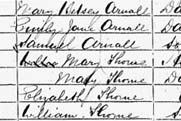 Mary Betsey Arnall Da
Emily Jane Arnall Da
Samuel Arnall So
Mary Thorne
Mary Thorne Da
Elizabeth Thorne Da
William Thorne So